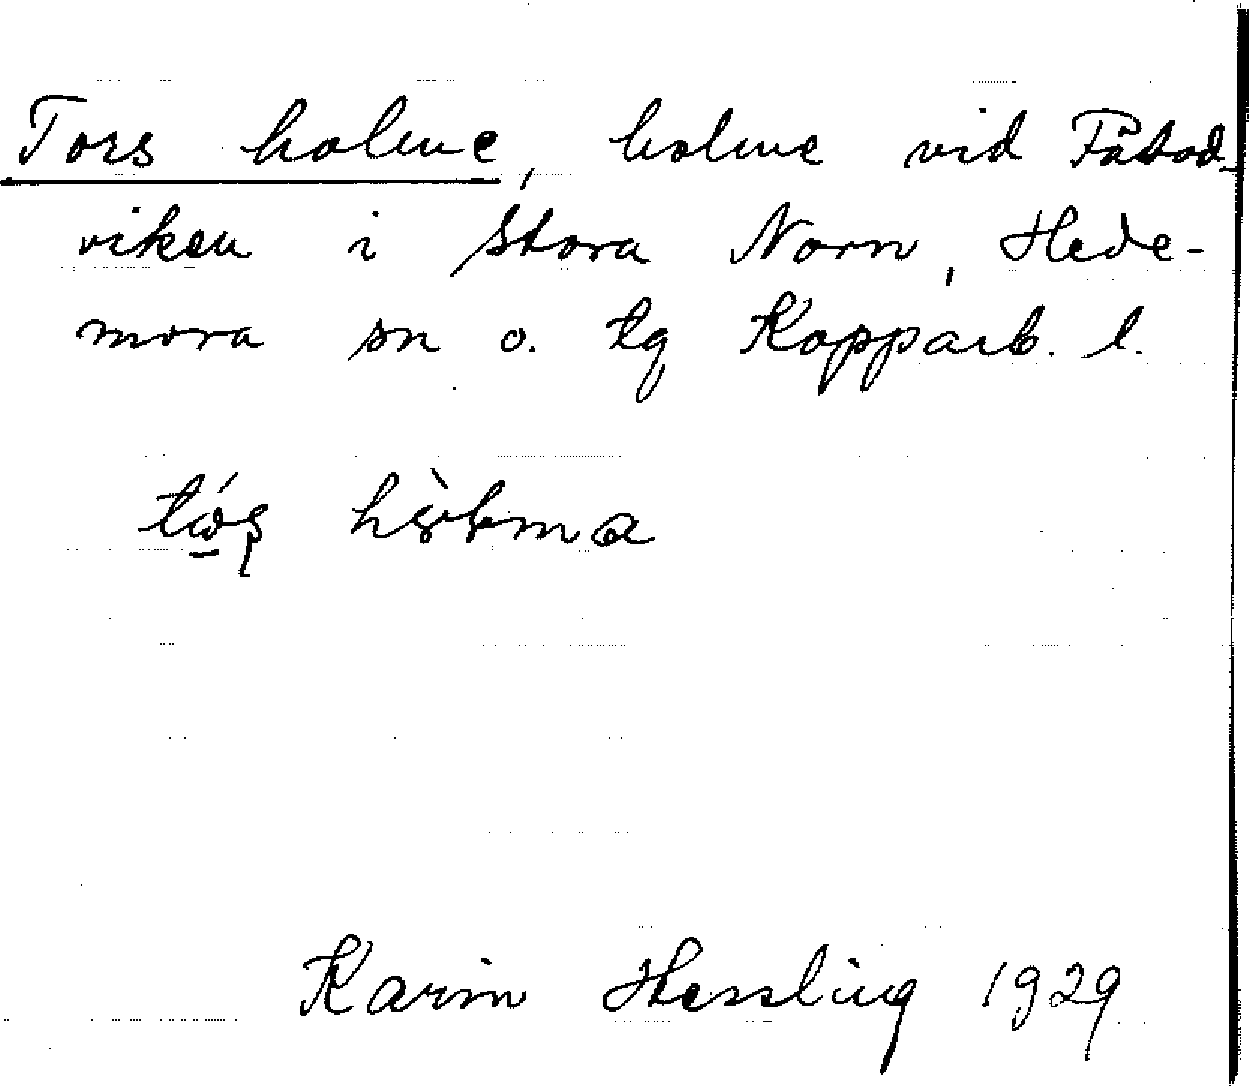 Tors holme, holme vid Fåbod-
viken i Stora Norn, Hede-
mora sn o. tg Kopparb. l.
Karin Hessling 1929